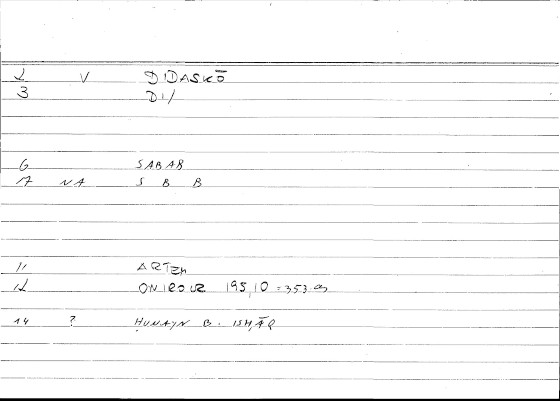 2 V DIDASKŌ
3 DI/
6 SABAB
7A NA S B B
11 ARTEM
12 ONIROCR 195,10 = 353
14 ? ḤUNAYN B. ISḤĀQ